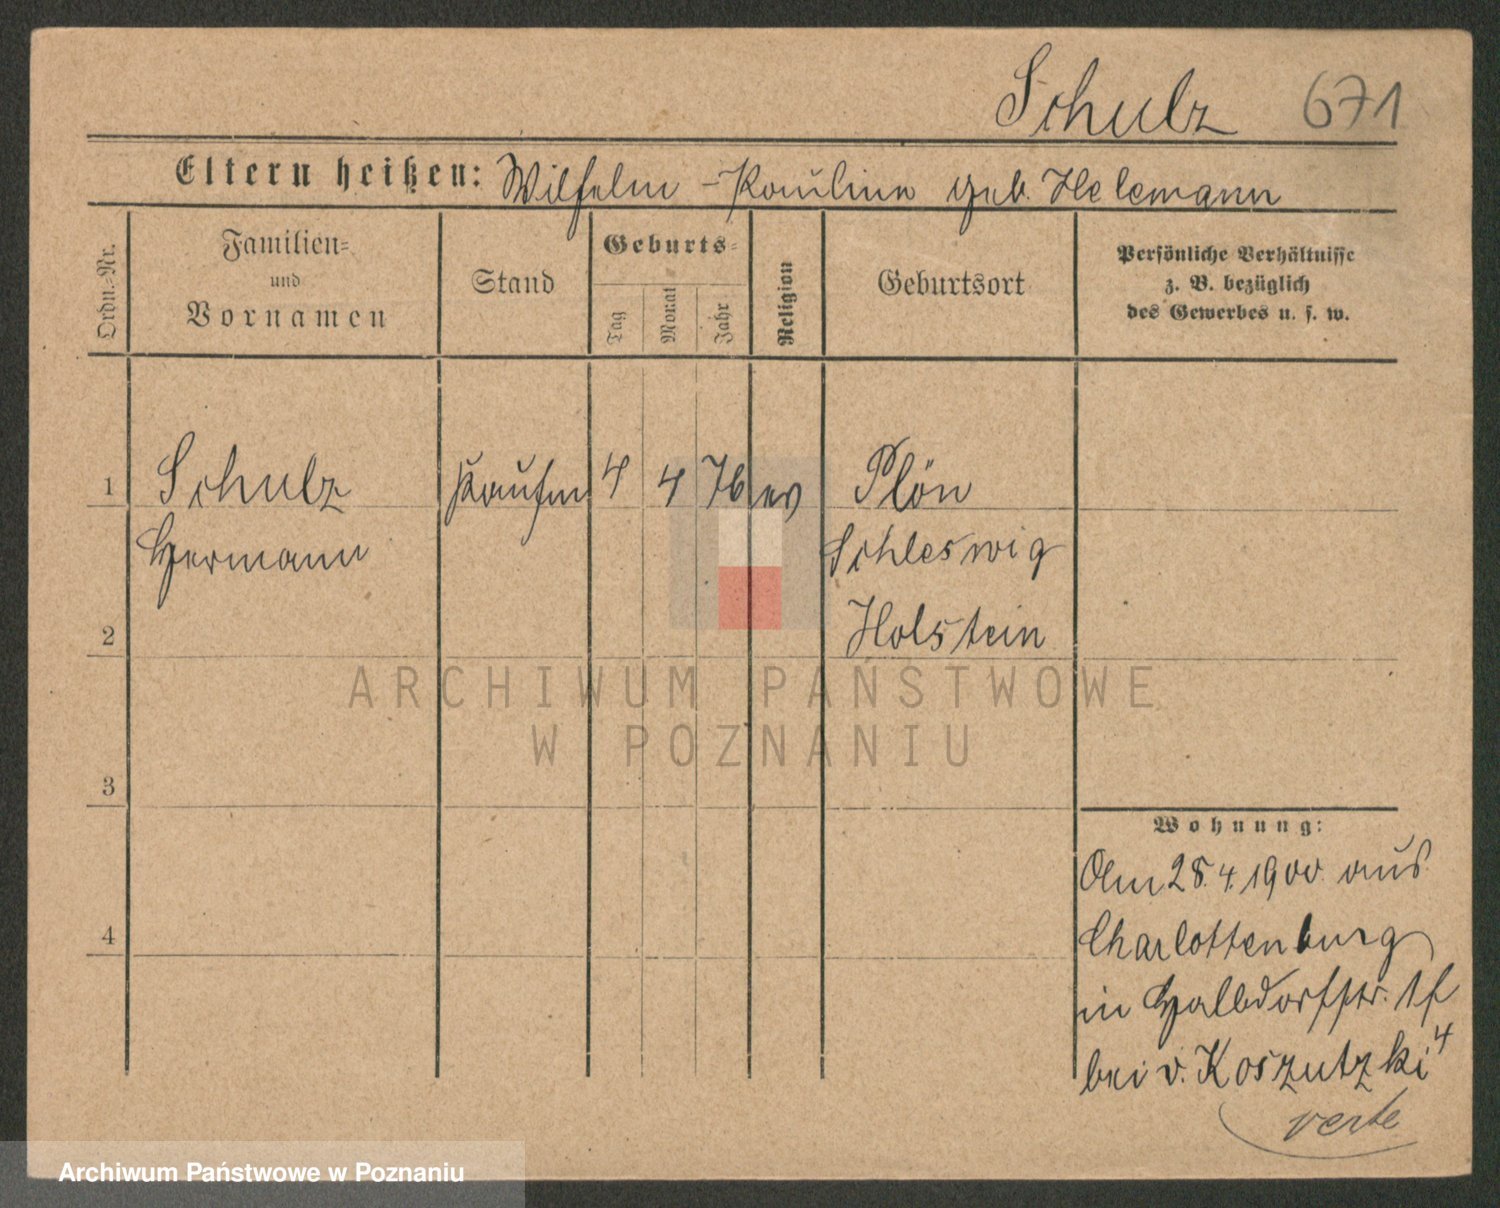 Schulz 671
Eltern heißen: Wilhelm - Pauline geb. Helemann
Ordn.-Nr.
Familien-
und
Vornamen
Stand
Geburts-
Tag
Monat
Jahr
Religion
Geburtsort
Persönliche Verhältnisse
z. B. bezüglich
des Gewerbes u. s. w.
1 Schulz Kaufm 4 4 76 ev Plön
Hermann Schleswig
2 Holstein
ARCHIWUM PAŃSTWOWE
W POZNANIU
3
Wohnung:
Am 28.4.1900 aus
Charlottenburg
4
in Halbdorfstr.
bei v. Koszutzki 4
verte
Archiwum Państwowe w Poznaniu